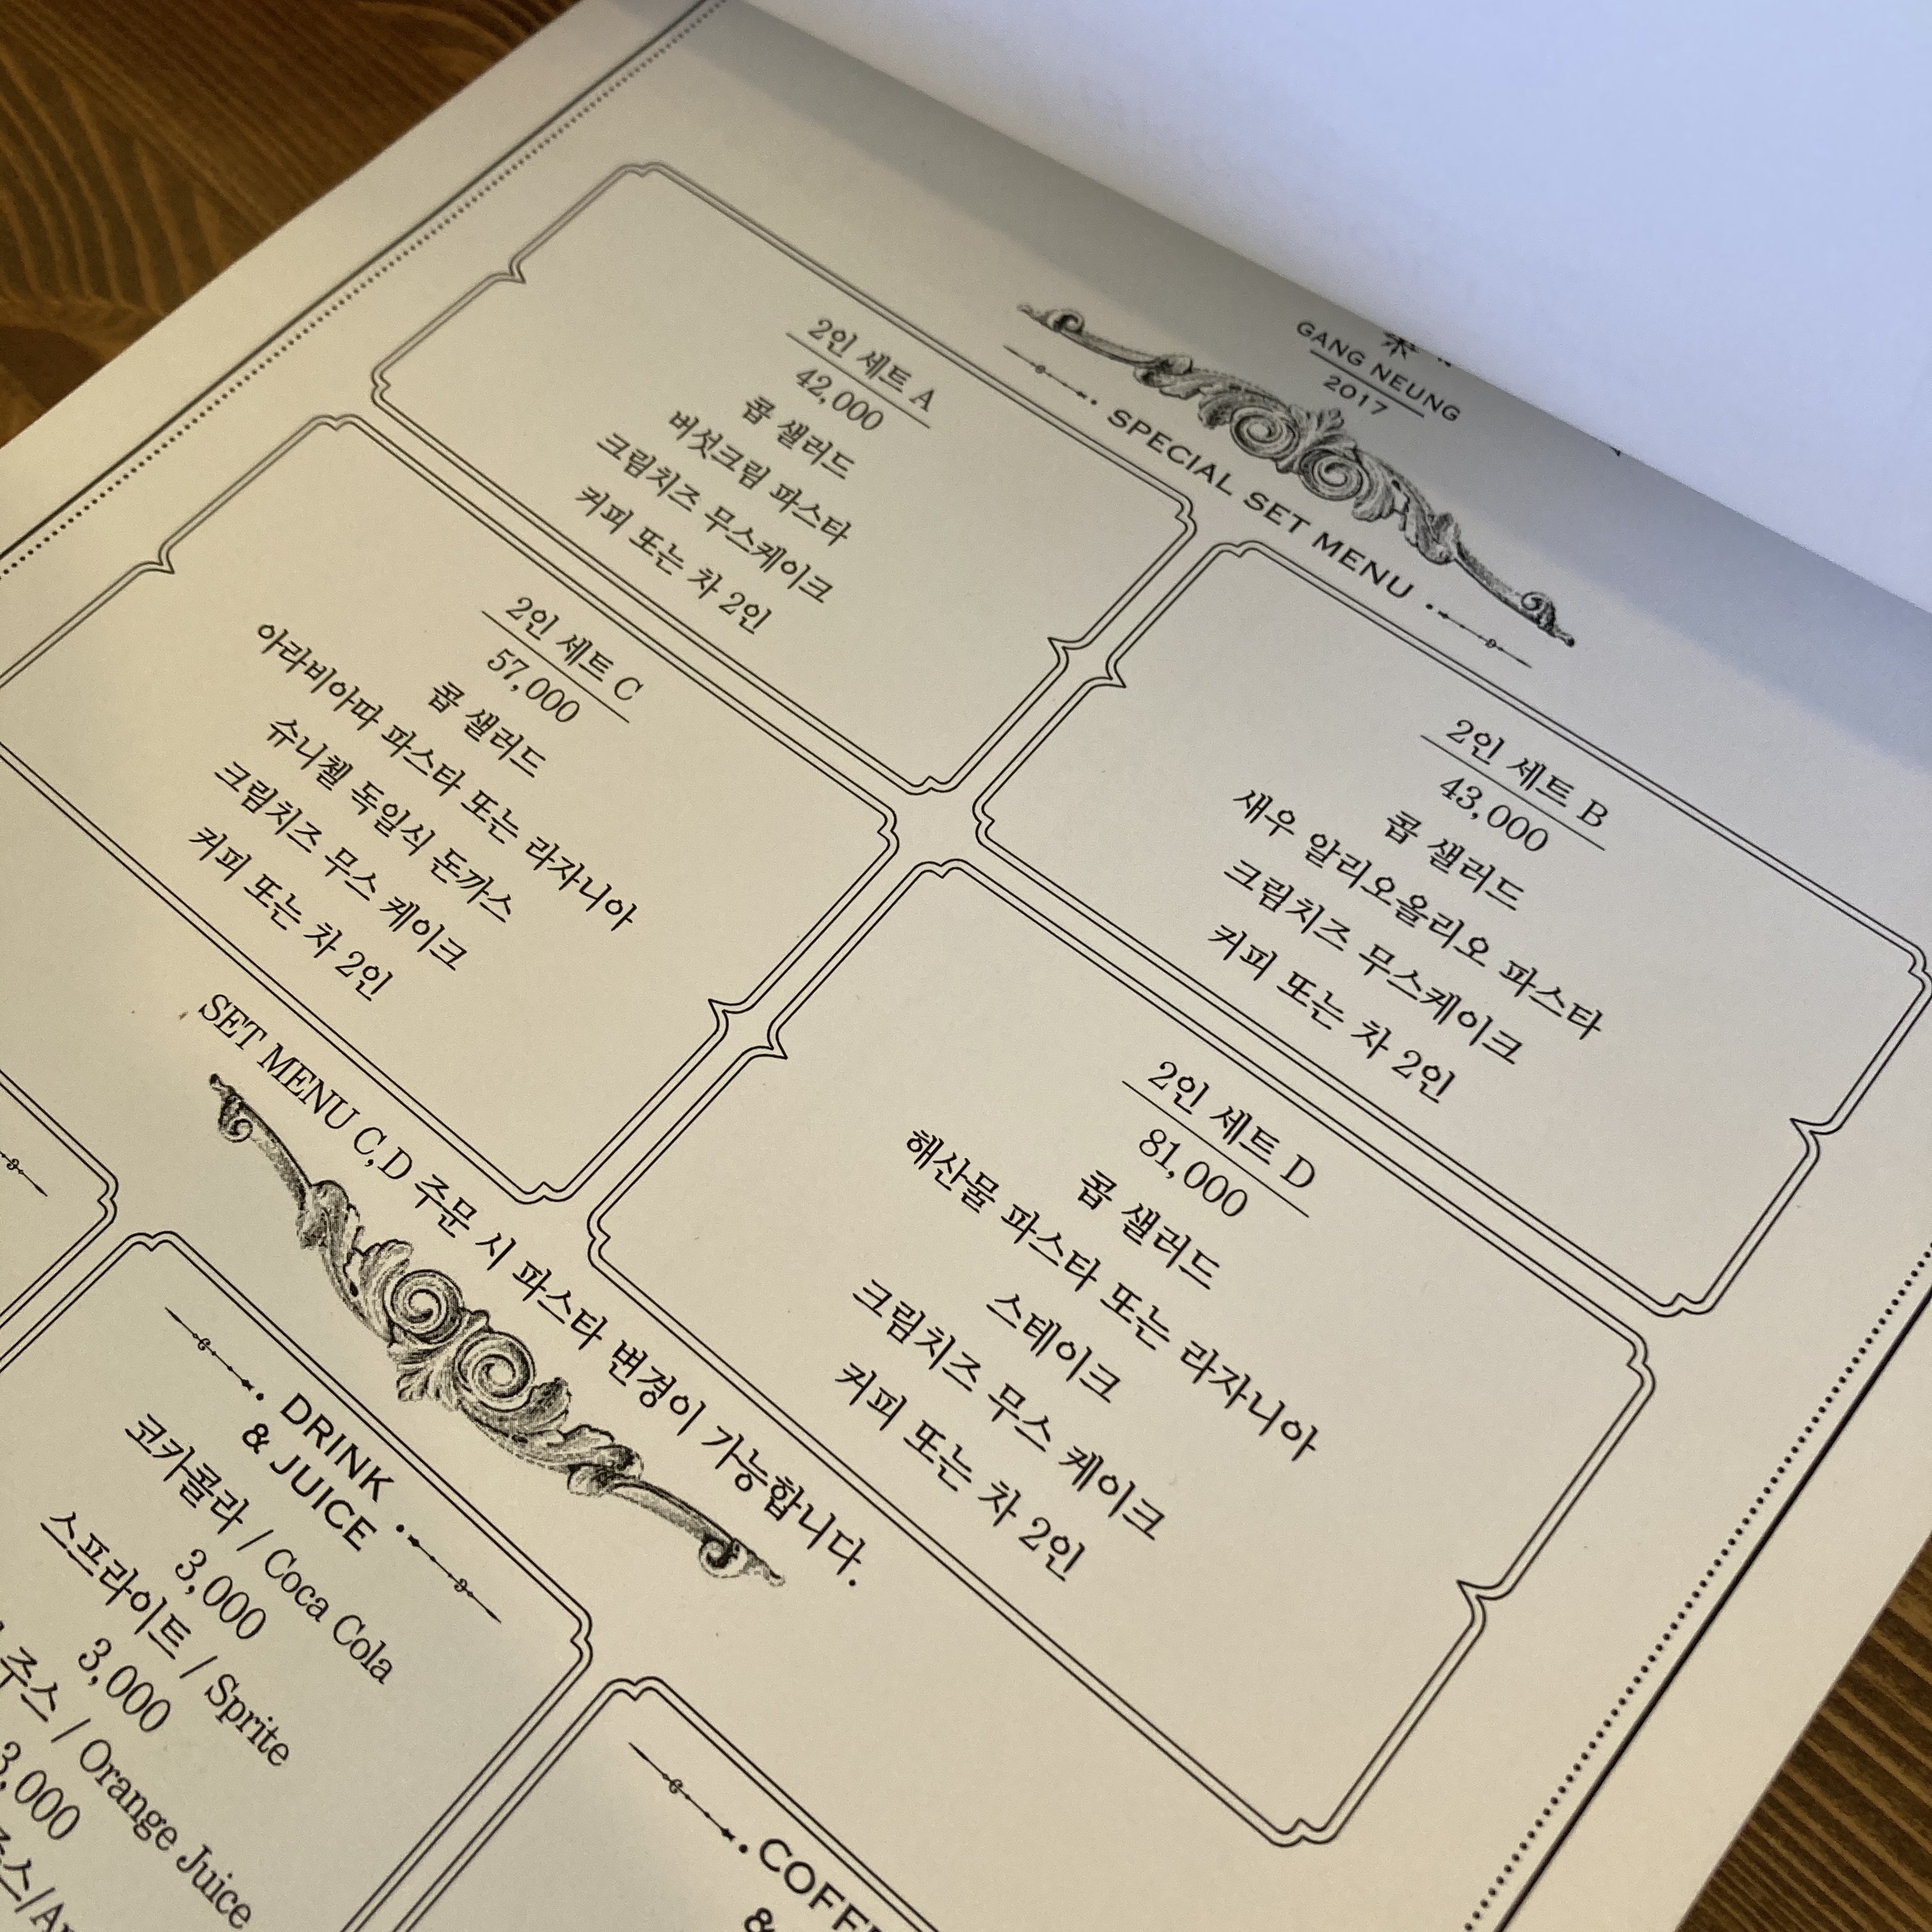 GANG NEUNG
2017
SPECIAL SET MENU
2인 세트 A
42,000
콥 샐러드
버섯크림 파스타
크림치즈 무스케이크
커피 또는 차 2인
2인 세트 B
43,000
콥 샐러드
새우 알리오올리오 파스타
크림치즈 무스케이크
커피 또는 차 2인
2인 세트 C
57,000
콥 샐러드
아라비아따 파스타 또는 라자니아
슈니첼 독일식 돈까스
크림치즈 무스 케이크
커피 또는 차 2인
2인 세트 D
81,000
콥 샐러드
해산물 파스타 또는 라자니아
스테이크
크림치즈 무스 케이크
커피 또는 차 2인
SET MENU C,D 주문 시 파스타 변경이 가능합니다.
DRINK
& JUICE
코카콜라 / Coca Cola
3,000
스프라이트 / Sprite
3,000
주스 / Orange Juice
3,000
&